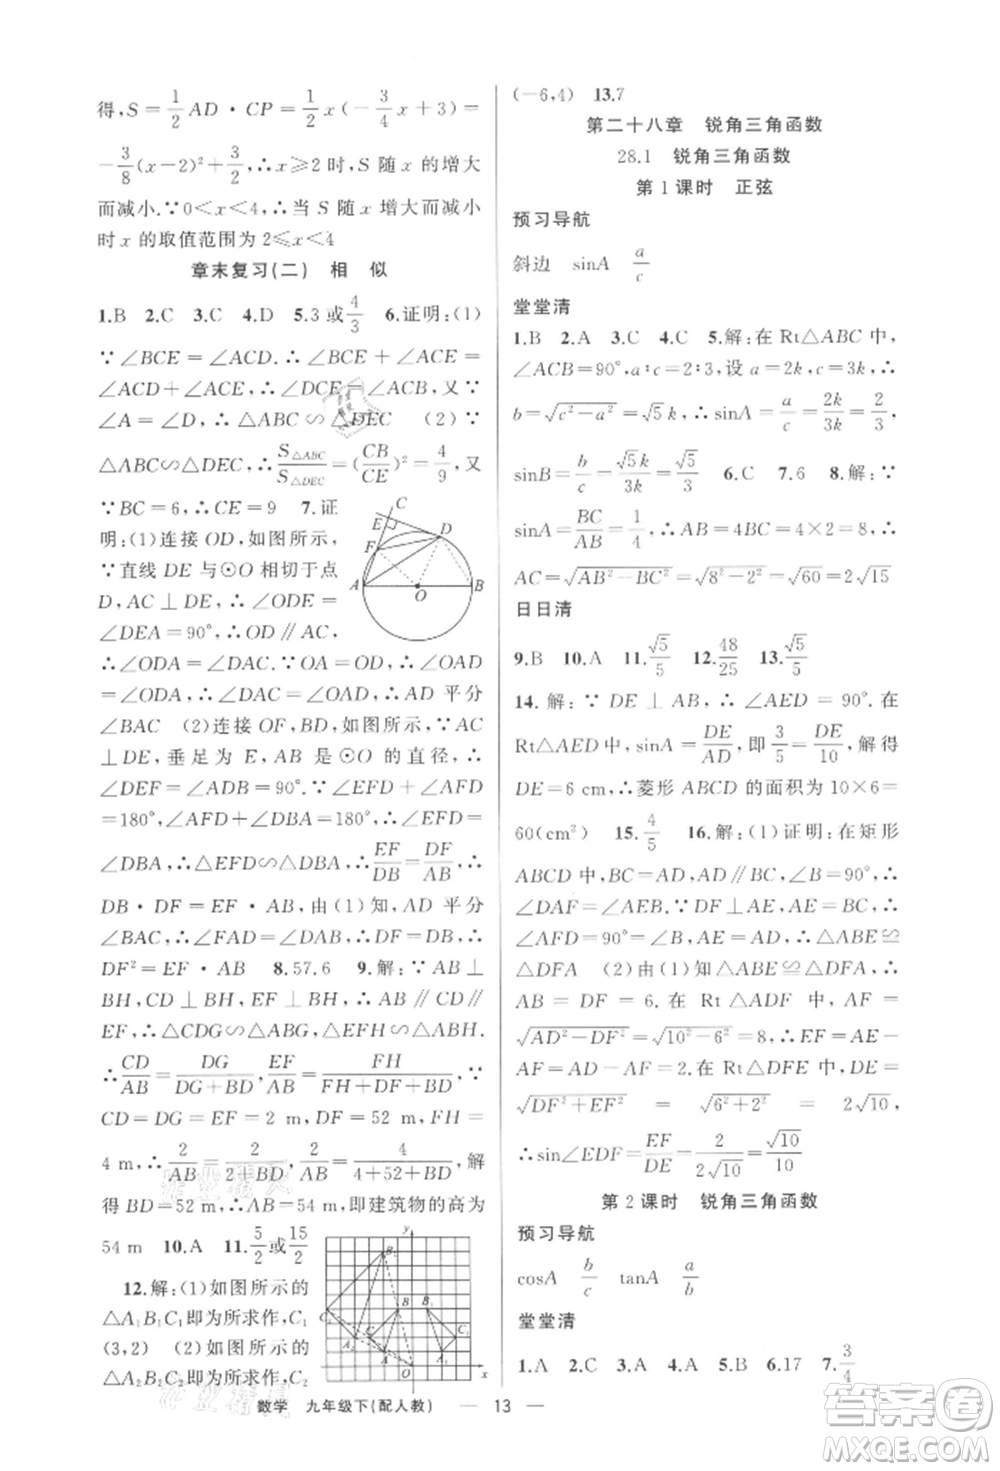 得, S = 1/2 AD · CP = 1/2 x(-3/4 x + 3) =
-3/8 (x-2)² + 3/2, ∴ x ⩾ 2 时, S 随 x 的增大
而减小. ∵ 0 < x < 4, ∴ 当 S 随 x 增大而减小
时 x 的取值范围为 2 ⩽ x < 4
章末复习(二)　相　似
1.B　2.C　3.C　4.D　5.3 或 4/3　6.证明:(1)
∵ ∠BCE = ∠ACD. ∴ ∠BCE + ∠ACE =
∠ACD + ∠ACE, ∴ ∠DCE = ∠ACB, 又 ∵
∠A = ∠D, ∴ △ABC ∽ △DEC　(2) ∵
△ABC∽△DEC, ∴ S△ABC/S△DEC = (CB/CE)² = 4/9, 又
∵ BC = 6, ∴ CE = 9　7.证
明:(1)连接 OD, 如图所示,
∵直线 DE 与⊙O 相切于点
D, AC ⊥ DE, ∴ ∠ODE =
∠DEA = 90°, ∴ OD ∥ AC,
∴ ∠ODA = ∠DAC. ∵ OA = OD, ∴ ∠OAD
= ∠ODA, ∴ ∠DAC = ∠OAD, ∴ AD 平分
∠BAC　(2)连接 OF, BD, 如图所示, ∵ AC
⊥DE, 垂足为 E, AB 是 ⊙O 的直径, ∴
∠DEF = ∠ADB = 90°. ∵ ∠EFD + ∠AFD
= 180°, ∠AFD + ∠DBA = 180°, ∴ ∠EFD =
∠DBA, ∴ △EFD∽△DBA, ∴ EF/DB = DF/AB, ∴
DB · DF = EF · AB, 由 (1) 知, AD 平分
∠BAC, ∴ ∠FAD = ∠DAB, ∴ DF = DB, ∴
DF² = EF · AB　8.57.6　9.解: ∵ AB ⊥
BH, CD ⊥ BH, EF ⊥ BH, ∴ AB ∥ CD ∥
EF, ∴ △CDG∽△ABG, △EFH∽△ABH.
∴ CD/AB = DG/(DG + BD), EF/AB = FH/(FH + DF + BD). ∵
CD = DG = EF = 2 m, DF = 52 m, FH =
4 m, ∴ 2/AB = 2/(2 + BD), 2/AB = 4/(4 + 52 + BD), 解
得 BD = 52 m, ∴ AB = 54 m, 即建筑物的高为
54 m　10.A　11. 5/2 或 15/2
12.解:(1)如图所示的
△A₁B₁C₁即为所求作, C₁
(3,2)　(2) 如图所示的
△A₂B₂C₂即为所求作, C₂
C
E
D
F
A
O
B
y
B₂
C₂
B₁
B
A₂
A
C
A₁
C₁
O
x
(-6,4)　13.7
第二十八章　锐角三角函数
28.1　锐角三角函数
第 1 课时　正弦
预习导航
斜边　sinA　a/c
堂堂清
1.B　2.A　3.C　4.C　5.解:在 Rt△ABC 中,
∠ACB = 90°, a : c = 2 : 3, 设 a = 2k, c = 3k, ∴
b = √(c² - a²) = √5 k, ∴ sinA = a/c = 2k/3k = 2/3,
sinB = b/c = √5k/3k = √5/3　6.C　7.6　8.解: ∵
sinA = BC/AB = 1/4, ∴ AB = 4BC = 4×2 = 8, ∴
AC = √(AB² - BC²) = √(8² - 2²) = √60 = 2√15
日日清
9.B　10.A　11. √5/5　12. 48/25　13. √5/5
14.解: ∵ DE ⊥ AB, ∴ ∠AED = 90°. 在
Rt△AED 中, sinA = DE/AD, 即 3/5 = DE/10, 解得
DE = 6 cm, ∴ 菱形 ABCD 的面积为 10×6 =
60(cm²)　15. 4/5　16.解:(1)证明:在矩形
ABCD 中, BC = AD, AD∥BC, ∠B = 90°, ∴
∠DAF = ∠AEB. ∵ DF⊥AE, AE = BC, ∴
∠AFD = 90° = ∠B, AE = AD, ∴ △ABE≌
△DFA　(2) 由 (1) 知 △ABE ≌ △DFA, ∴
AB = DF = 6. 在 Rt △ADF 中, AF =
√(AD² - DF²) = √(10² - 6²) = 8, ∴ EF = AE -
AF = AD - AF = 2. 在 Rt△DFE 中, DE =
√(DF² + EF²) = √(6² + 2²) = 2√10,
∴ sin∠EDF = EF/DE = 2/(2√10) = √10/10
第 2 课时　锐角三角函数
预习导航
cosA　b/c　tanA　a/b
堂堂清
1.A　2.C　3.A　4.A　5.B　6.17　7. 3/4
数学　九年级下(配人教)　— 13 —
答案圈
MXQE.COM